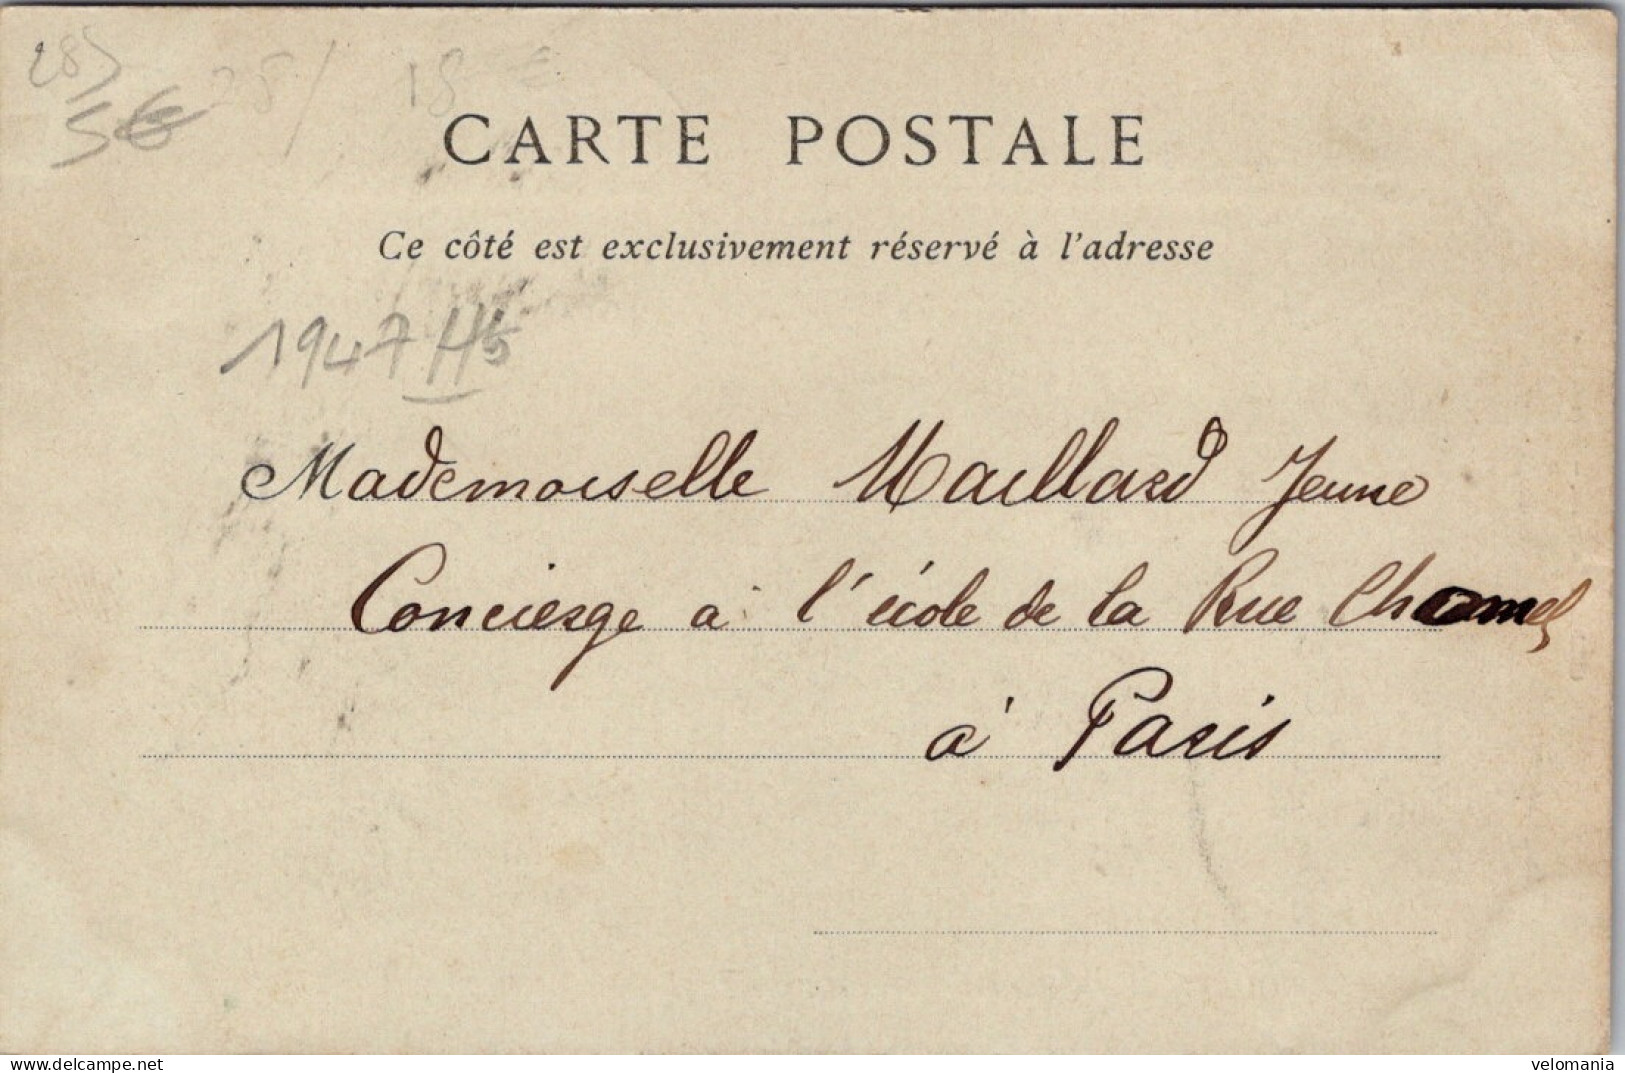 285
5€
28/
18 €
CARTE POSTALE
Ce côté est exclusivement réservé à l'adresse
1947 H5
Mademoiselle Maillard Jeune
Concierge a l'école de la Rue
à Paris
the delcampe.net
velomania